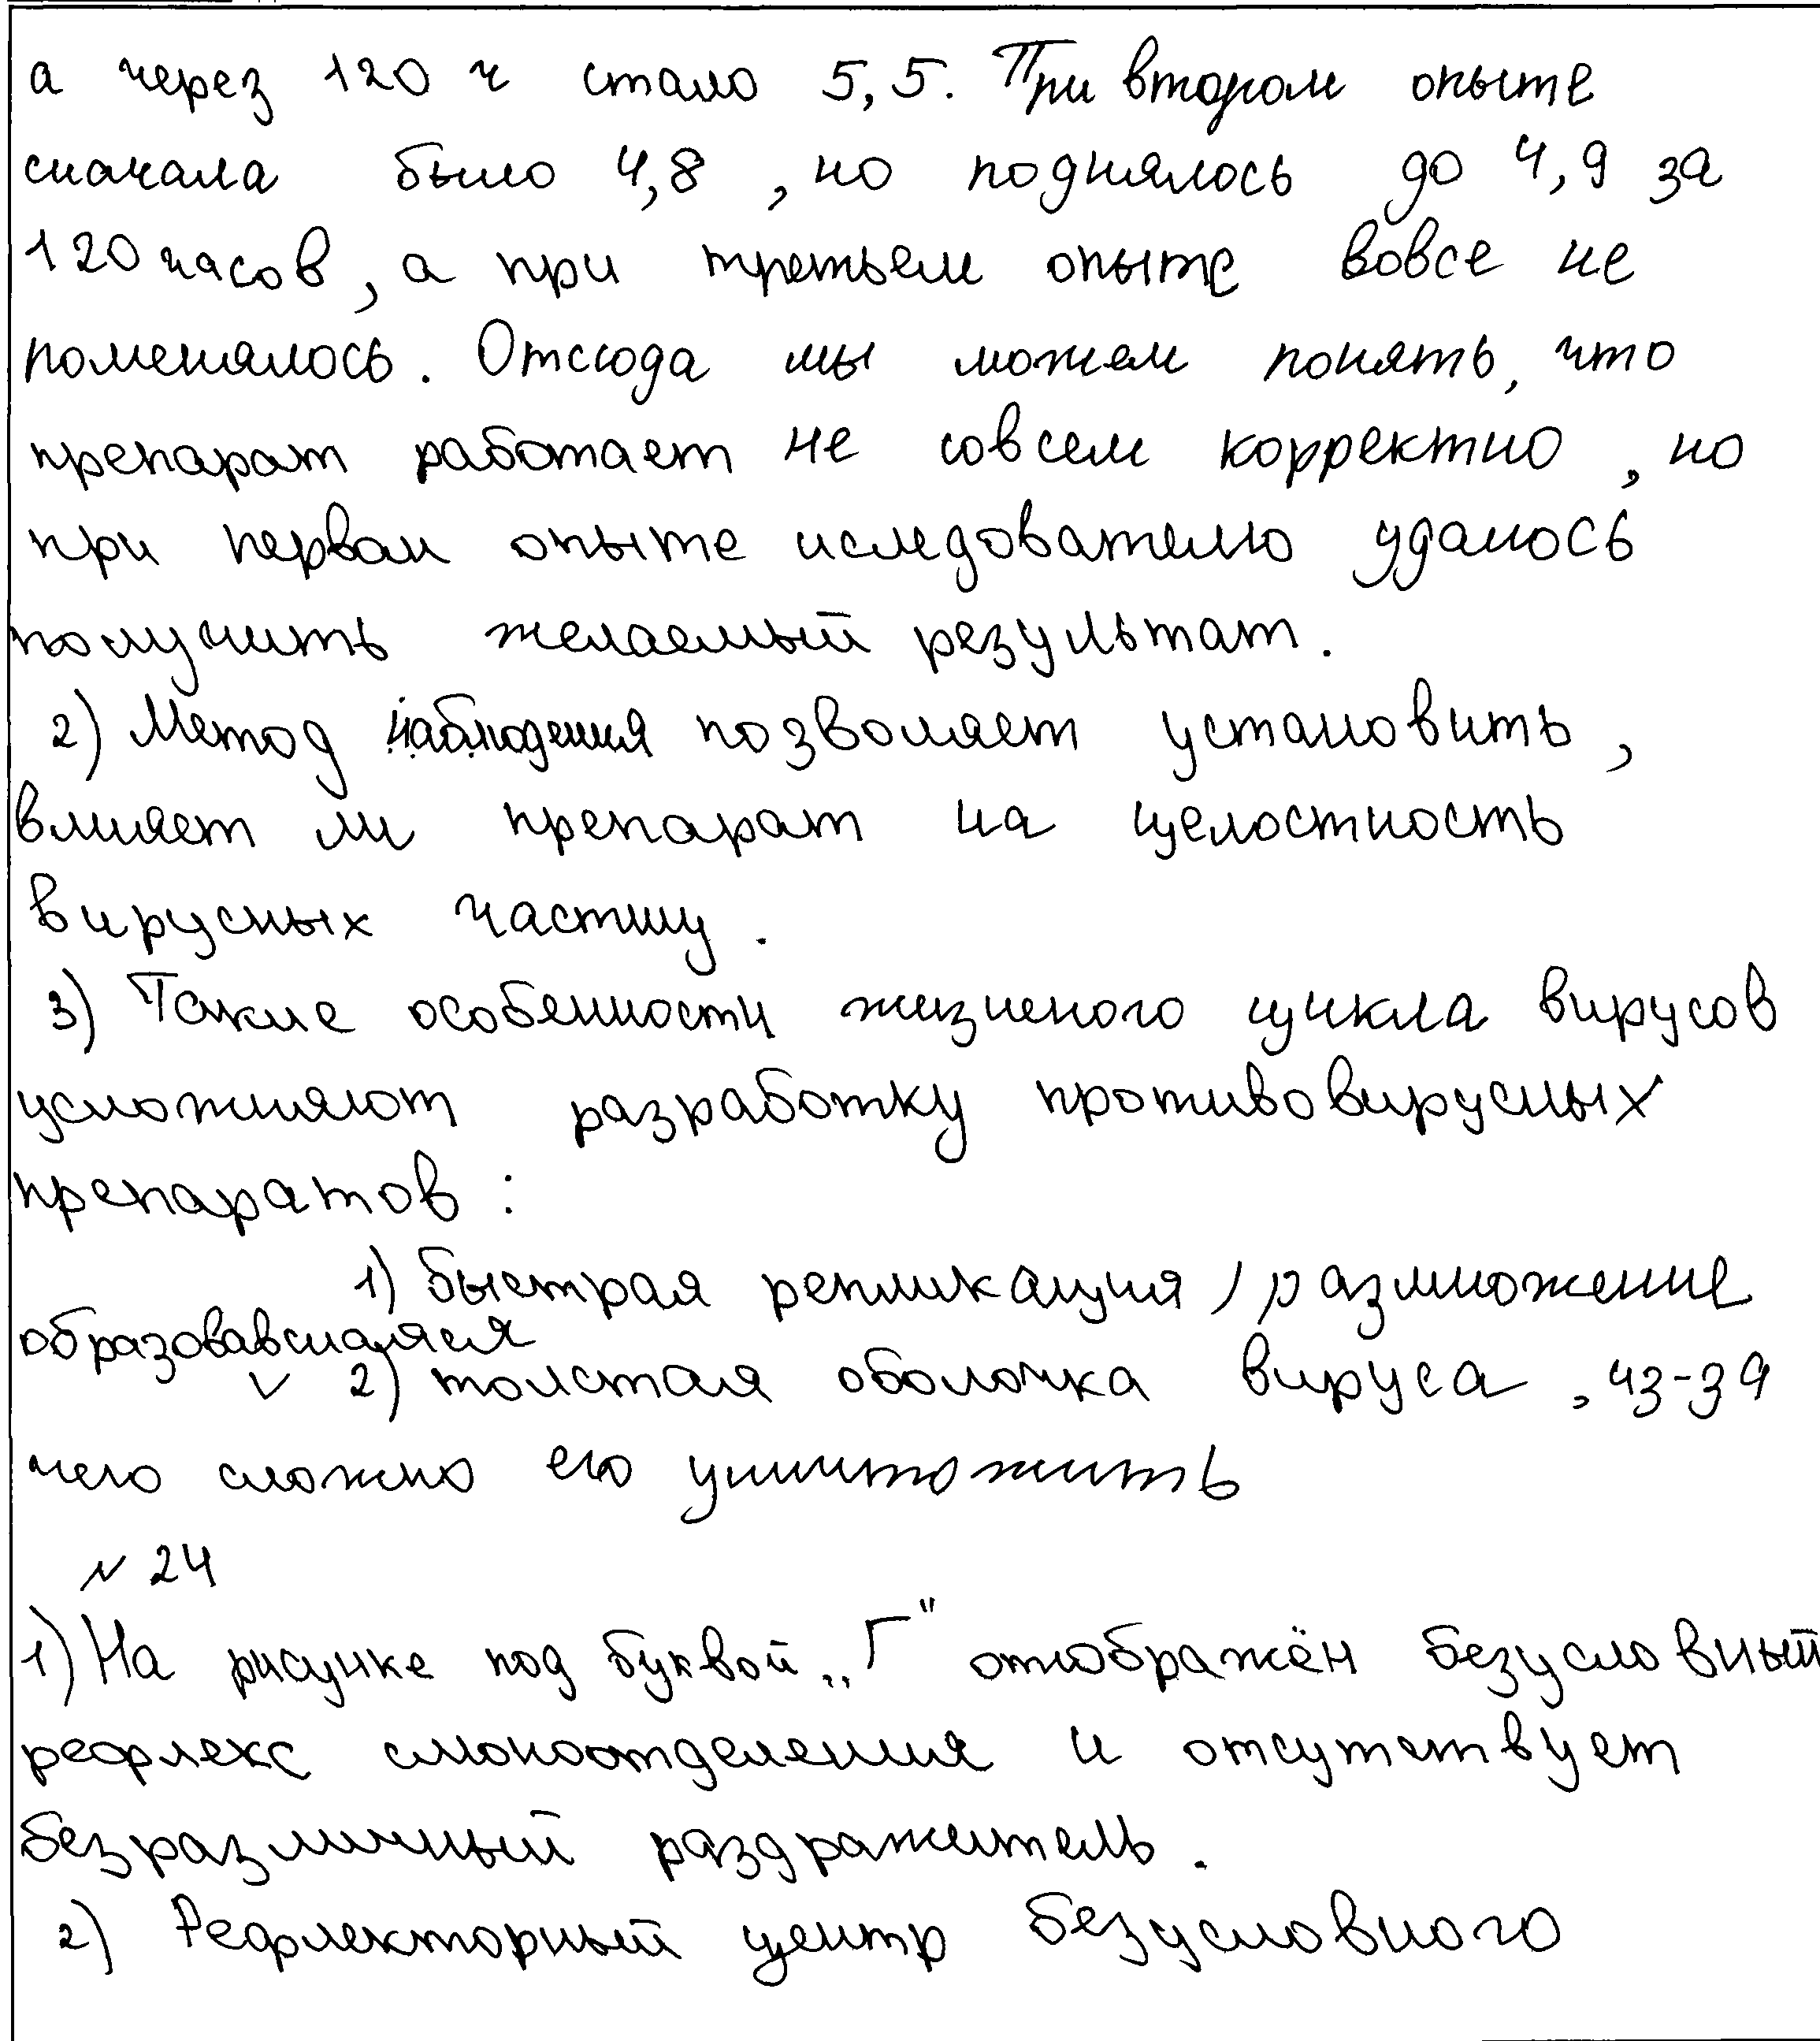 а через 120 ч стало 5,5. При втором опыте
сначала было 4,8 , но поднялось до 4,9 за
120 часов, а при третьем опыте вовсе не
поменялось. Отсюда мы можем понять, что
препарат работает не совсем корректно, но
при первом опыте иследователю удалось
получить желаемый результат.
2) Метод наблюдения позволяет установить,
влияет ли препарат на целостность
вирусных частиц.
3) Такие особенности жизненого цикла вирусов
усложняют разработку противовирусных
препаратов:
1) быстрая репликация, размножение
образовавшаяся
√ 2) толстая оболочка вируса, из-за
чего сложно его уничтожить
№ 24
1) На рисунке под буквой „Г" отображён безусловный
рефлекс слюноотделения и отсутствует
безразличный раздражитель.
2) Рефлекторный центр безусловного